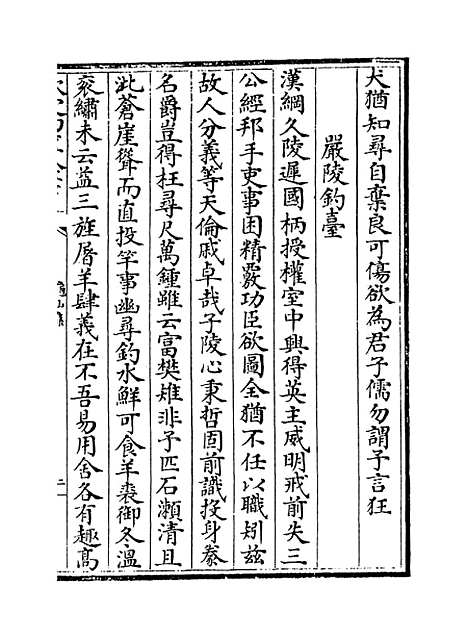 犬猶知尋自棄良可傷欲為君子儒勿謂予言狂
嚴陵釣臺
漢綱久陵遲國柄授權室中興得英主威明戒前失三
公經邦手吏事困精覈功臣欲圖全猶不任以職矧茲
故人分義等天倫戚卓哉子陵心秉哲固前識投身豢
名爵豈得枉尋尺萬鍾雖云富樊雉非予匹石瀨清且
泚蒼崖聳而直投竿事幽尋釣水鮮可食羊裘御冬溫
袞繡未云益三旌屠羊肆義在不吾易用舍各有趣高